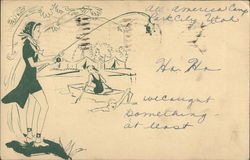 All America Camp
Park City, Utah
Ha Ha
we caught
something -
at least